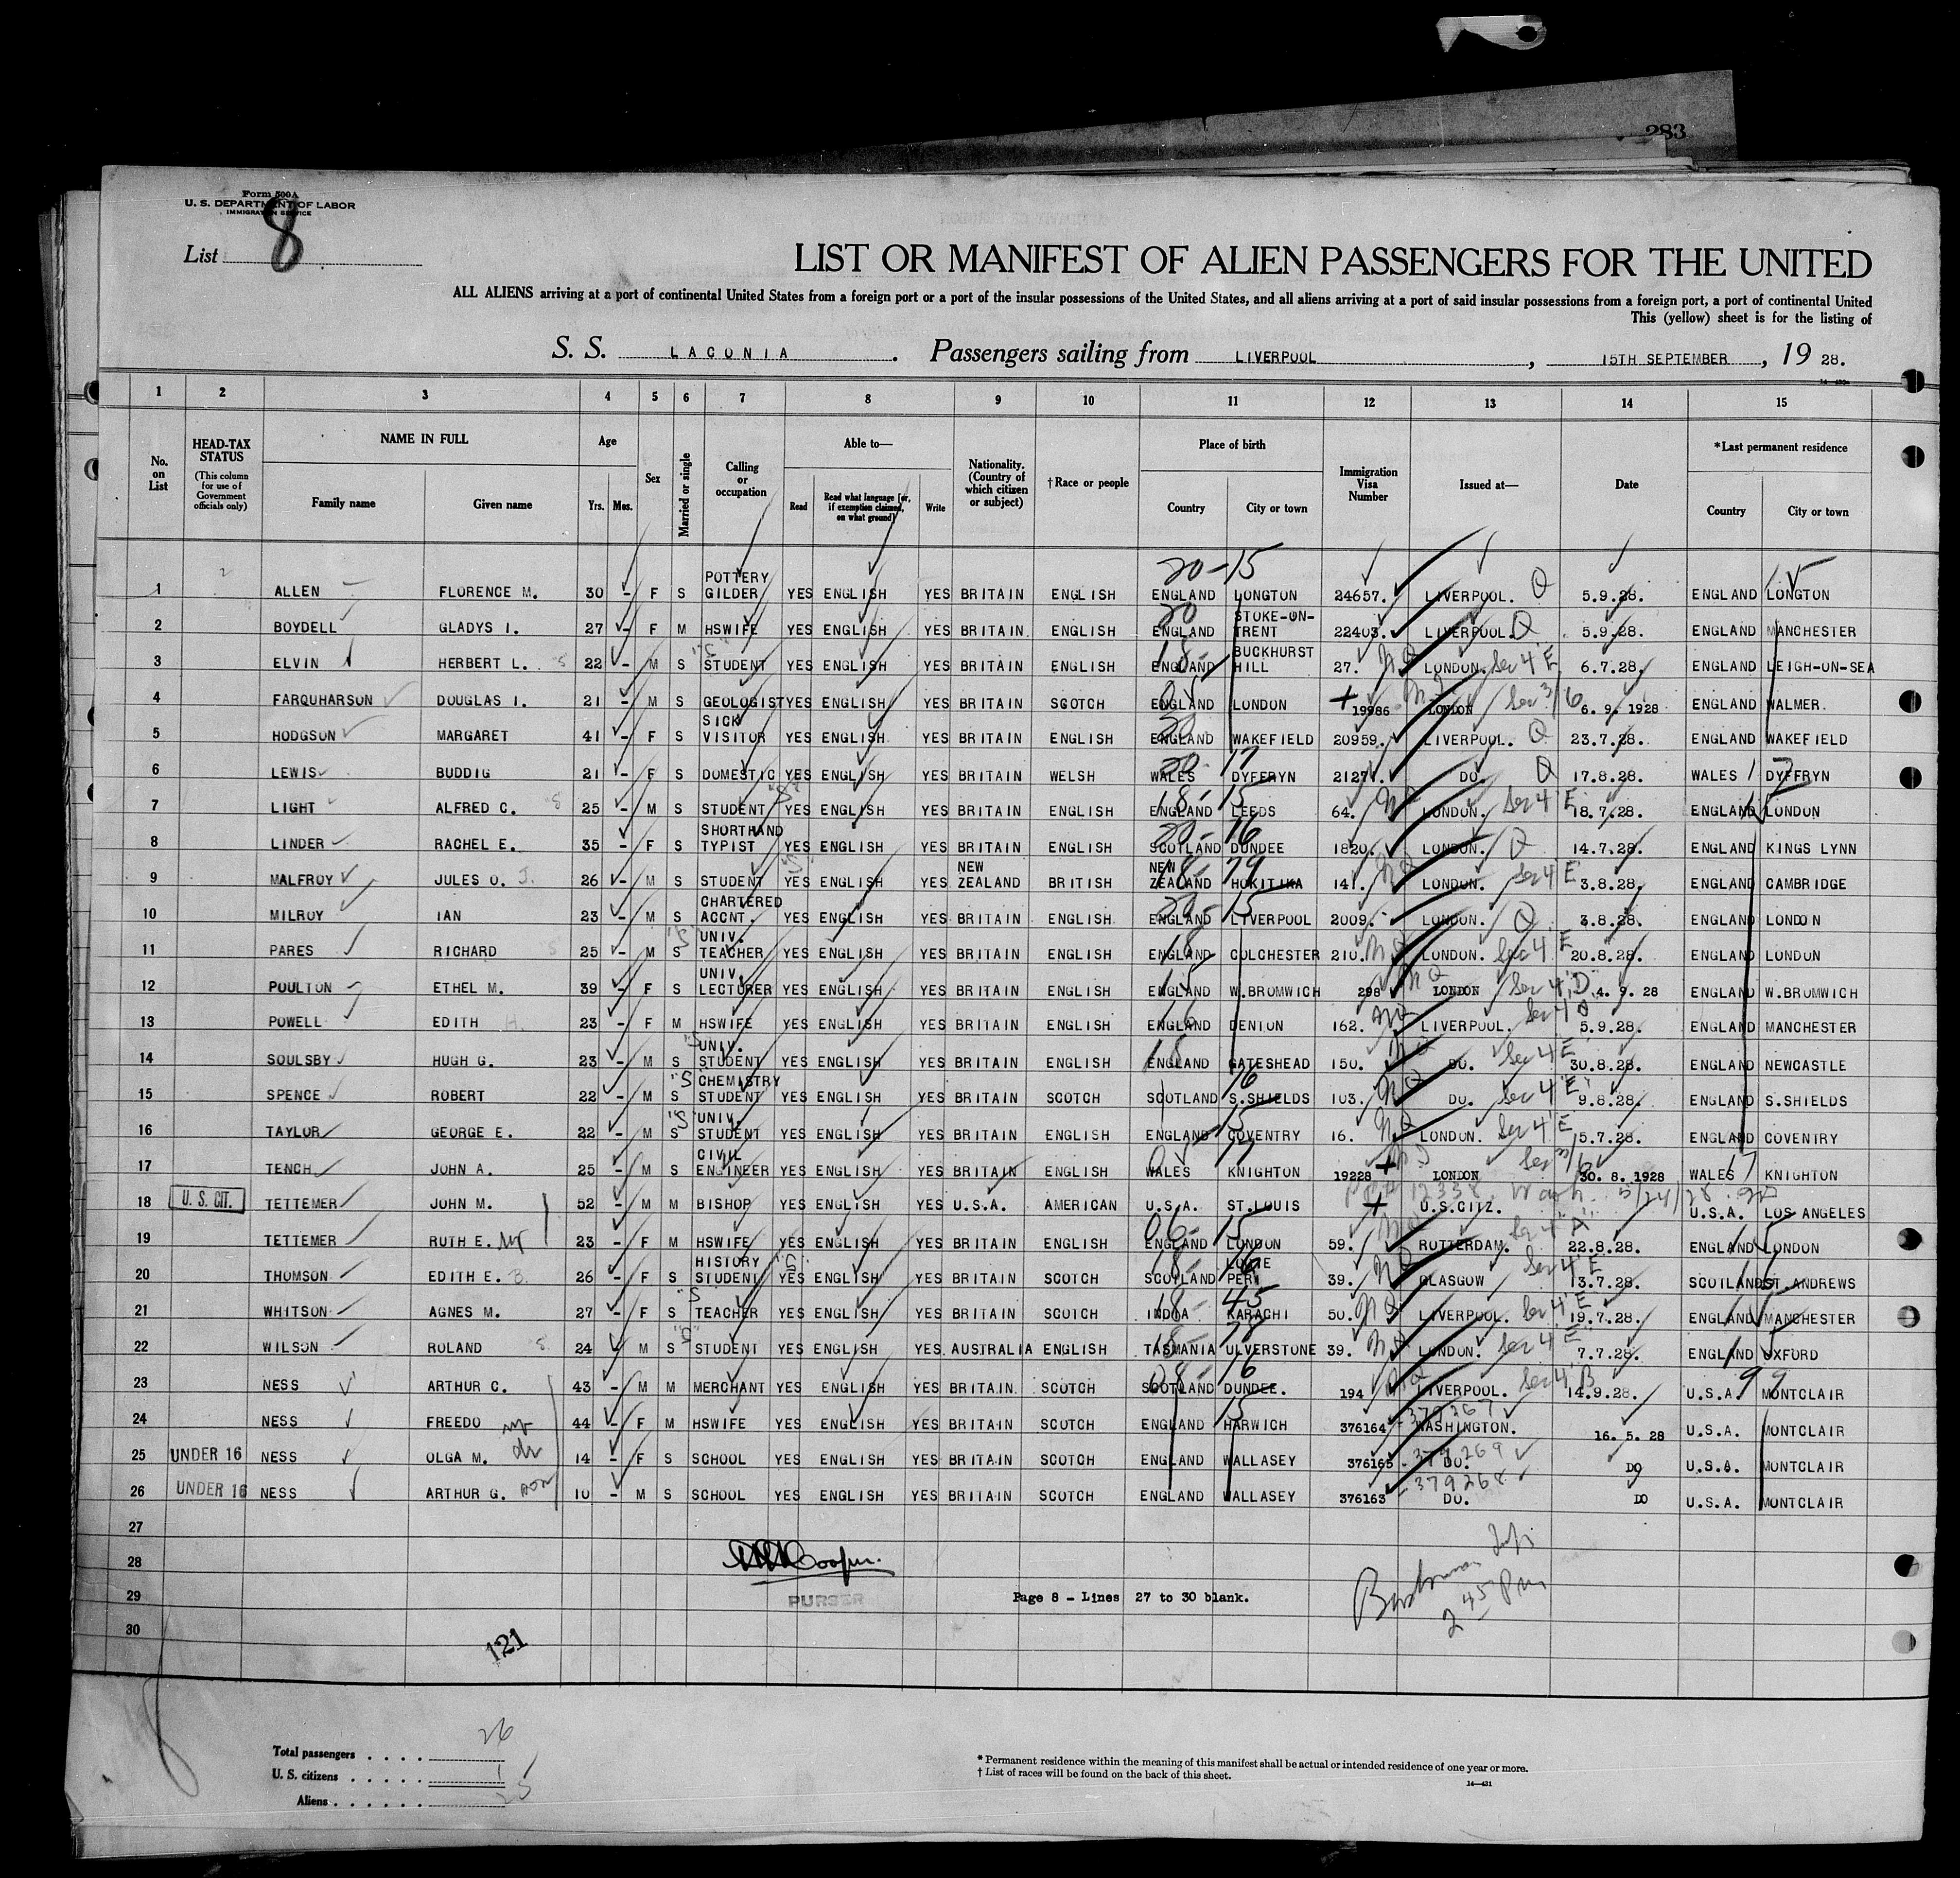 283
Form 500A
U. S. DEPARTMENT OF LABOR
IMMIGRATION SERVICE
List 8
LIST OR MANIFEST OF ALIEN PASSENGERS FOR THE UNITED
ALL ALIENS arriving at a port of continental United States from a foreign port or a port of the insular possessions of the United States, and all aliens arriving at a port of said insular possessions from a foreign port, a port of continental United
This (yellow) sheet is for the listing of
S. S. LACONIA . Passengers sailing from LIVERPOOL , 15TH SEPTEMBER , 19 28.
1 2 3 4 5 6 7 8 9 10 11 12 13 14 15
No. on List
HEAD-TAX STATUS (This column for use of Government officials only)
NAME IN FULL Family name Given name
Age Yrs. Mos.
Sex
Married or single
Calling or occupation
Able to— Read Read what language [or, if exemption claimed, on what ground] Write
Nationality. (Country of which citizen or subject)
†Race or people
Place of birth Country City or town
Immigration Visa Number
Issued at—
Date
*Last permanent residence Country City or town
1 ALLEN FLORENCE M. 30 - F S POTTERY GILDER YES ENGLISH YES BRITAIN ENGLISH ENGLAND LONGTON 24657. LIVERPOOL. Q 5.9.28. ENGLAND LONGTON
2 BOYDELL GLADYS I. 27 - F M HSWIFE YES ENGLISH YES BRITAIN ENGLISH ENGLAND STOKE-ON-TRENT 22403. LIVERPOOL. Q 5.9.28. ENGLAND MANCHESTER
3 ELVIN HERBERT L. 22 - M S "S" STUDENT YES ENGLISH YES BRITAIN ENGLISH ENGLAND BUCKHURST HILL 27. NQ LONDON. Sec 4 E 6.7.28. ENGLAND LEIGH-ON-SEA
4 FARQUHARSON DOUGLAS I. 21 - M S GEOLOGIST YES ENGLISH YES BRITAIN SCOTCH ENGLAND LONDON 19986 LONDON Sec 3/6 6. 9. 1928 ENGLAND WALMER.
5 HODGSON MARGARET 41 - F S SICK VISITOR YES ENGLISH YES BRITAIN ENGLISH ENGLAND WAKEFIELD 20959. LIVERPOOL. Q 23.7.28. ENGLAND WAKEFIELD
6 LEWIS BUDDIG 21 - F S DOMESTIC YES ENGLISH YES BRITAIN WELSH WALES DYFFRYN 21271. DO. Q 17.8.28. WALES DYFFRYN
7 LIGHT ALFRED C. 25 - M S STUDENT "S" YES ENGLISH YES BRITAIN ENGLISH ENGLAND LEEDS 64. NQ LONDON. Sec 4 E 18.7.28. ENGLAND LONDON
8 LINDER RACHEL E. 35 - F S SHORTHAND TYPIST YES ENGLISH YES BRITAIN ENGLISH SCOTLAND DUNDEE 1820. LONDON. Q 14.7.28. ENGLAND KINGS LYNN
9 MALFROY JULES O. J. 26 - M S STUDENT "S" YES ENGLISH YES NEW ZEALAND BRITISH NEW ZEALAND HOKITIKA 141. NQ LONDON. Sec 4 E 3.8.28. ENGLAND CAMBRIDGE
10 MILROY IAN 23 - M S CHARTERED ACCNT. YES ENGLISH YES BRITAIN ENGLISH ENGLAND LIVERPOOL 2009. LONDON. Q 3.8.28. ENGLAND LONDON
11 PARES RICHARD 25 - M S "S" UNIV. TEACHER YES ENGLISH YES BRITAIN ENGLISH ENGLAND COLCHESTER 210. NQ LONDON. Sec 4 E 20.8.28. ENGLAND LONDON
12 POULTON ETHEL M. 39 - F S UNIV. LECTURER YES ENGLISH YES BRITAIN ENGLISH ENGLAND W.BROMWICH 298 NQ LONDON Sec 4 "D" 4. 9. 28 ENGLAND W.BROMWICH
13 POWELL EDITH H. 23 - F M HSWIFE YES ENGLISH YES BRITAIN ENGLISH ENGLAND DENTON 162. NQ LIVERPOOL. 5.9.28. ENGLAND MANCHESTER
14 SOULSBY HUGH G. 23 - M S "S" UNIV. STUDENT YES ENGLISH YES BRITAIN ENGLISH ENGLAND GATESHEAD 150. NQ DO. Sec 4 E 30.8.28. ENGLAND NEWCASTLE
15 SPENCE ROBERT 22 - M S "S" CHEMISTRY STUDENT YES ENGLISH YES BRITAIN SCOTCH SCOTLAND S.SHIELDS 103. NQ DO. Sec 4 "E" 9.8.28. ENGLAND S.SHIELDS
16 TAYLOR GEORGE E. 22 - M S "S" UNIV. STUDENT YES ENGLISH YES BRITAIN ENGLISH ENGLAND COVENTRY 16. NQ LONDON. Sec 4 E 5.7.28. ENGLAND COVENTRY
17 TENCH JOHN A. 25 - M S CIVIL ENGINEER YES ENGLISH YES BRITAIN ENGLISH WALES KNIGHTON 19228 LONDON Sec 3/6 30. 8. 1928 WALES KNIGHTON
18 U. S. CIT. TETTEMER JOHN M. 52 - M M BISHOP YES ENGLISH YES U.S.A. AMERICAN U.S.A. ST.LOUIS 12338 Wash. 5/24/28 U.S.CITZ. U.S.A. LOS ANGELES
19 TETTEMER RUTH E. wf 23 - F M HSWIFE YES ENGLISH YES BRITAIN ENGLISH ENGLAND LONDON 59. NQ ROTTERDAM. Sec 4 "A" 22.8.28. ENGLAND LONDON
20 THOMSON EDITH E. B. 26 - F S HISTORY STUDENT "S" YES ENGLISH YES BRITAIN SCOTCH SCOTLAND 39. NQ GLASGOW Sec 4 E 13.7.28. SCOTLAND ST.ANDREWS
21 WHITSON AGNES M. 27 - F S "S" TEACHER YES ENGLISH YES BRITAIN SCOTCH INDIA KARACHI 50. NQ LIVERPOOL. Sec 4 "E" 19.7.28. ENGLAND MANCHESTER
22 WILSON ROLAND 24 M S "S" STUDENT YES ENGLISH YES. AUSTRALIA ENGLISH TASMANIA ULVERSTONE 39. NQ LONDON. Sec 4 "E" 7.7.28. ENGLAND OXFORD
23 NESS ARTHUR C. 43 - M M MERCHANT YES ENGLISH YES BRITAIN. SCOTCH SCOTLAND DUNDEE. 194 NQ LIVERPOOL. Sec 4 B 14.9.28. U.S.A. MONTCLAIR
24 NESS FREEDO wf 44 - F M HSWIFE YES ENGLISH YES BRITAIN SCOTCH ENGLAND HARWICH 376164 - 379267 WASHINGTON. 16. 5. 28 U.S.A. MONTCLAIR
25 UNDER 16 NESS OLGA M. dr 14 - F S SCHOOL YES ENGLISH YES BRITAIN SCOTCH ENGLAND WALLASEY 376165 - 379269 DO. DO U.S.A. MONTCLAIR
26 UNDER 16 NESS ARTHUR G. son 10 - M S SCHOOL YES ENGLISH YES BRITAIN SCOTCH ENGLAND WALLASEY 376163 - 379268 DO. DO U.S.A. MONTCLAIR
27
28
29 PURSER Page 8 - Lines 27 to 30 blank.
2 45 Pm
30
121
Total passengers . . . . 26
U. S. citizens . . . . . 1
Aliens . . . . . . 25
* Permanent residence within the meaning of this manifest shall be actual or intended residence of one year or more.
† List of races will be found on the back of this sheet.
14—431